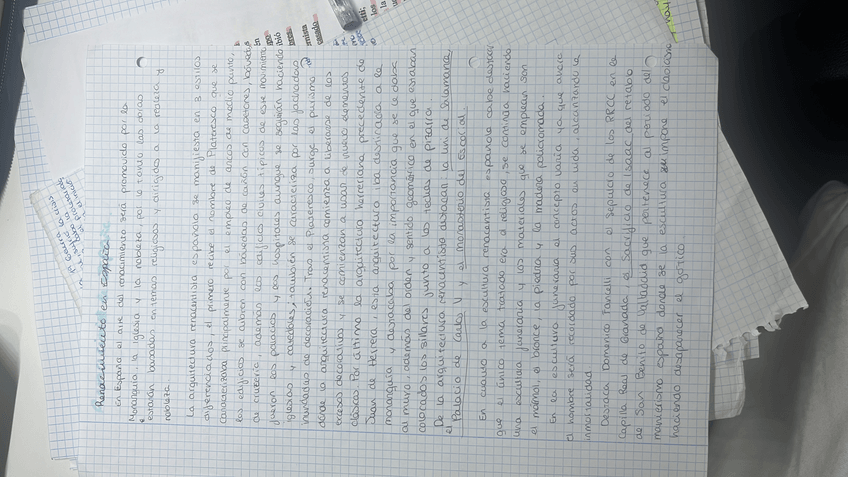 Renacimiento en España
En España el arte del renacimiento será promovido por la
Monarquía, la iglesia y la nobleza, por lo tanto las obras
estarán basadas en temas religiosos y dirigidos a la realeza y
nobleza
La arquitectura renacentista española se manifiesta en 3 estilos
diferenciados, el primero recibe el nombre de Plateresco que se
caracteriza principalmente por el empleo de arcos de medio punto,
los edificios se cubren con bóvedas de cañón con casetones, bóvedas
de crucería, además los edificios civiles típicos de este movimiento
fueron los palacios y los hospitales aunque se seguían haciendo
iglesias y catedrales, también se caracteriza por las fachadas
inundadas de decoración. Tras el Plateresco surge el purismo
donde la arquitectura renacentista comienza a liberarse de los
excesos decorativos y se comienzan a usar de nuevo elementos
clásicos. Por último la arquitectura herreriana procedente de
Juan de Herrera, esta arquitectura iba destinada a la
monarquía y destacaba por la importancia que se le daba
al muro, además del orden y sentido geométrico en el que estaban
colocados los sillares junto a los techos de pizarra.
De la arquitectura renacentista destacan la uni de Salamanca,
el Palacio de Carlos V y el monasterio del Escorial.
En cuanto a la escultura renacentista española cabe destacar
que el único tema tratado era el religioso, se continúa haciendo
una escultura funeraria y los materiales que se emplean son
el mármol, el bronce, la piedra y la madera policromada.
En la escultura funeraria el concepto varía ya que ahora
el hombre será recordado por sus actos en vida alcanzando la
inmortalidad
Destaca Domenico Fancelli con el sepulcro de los RRCC en la
Capilla Real de Granada, el Sacrificio de Isaac del retablo
de San Benito de Valladolid que pertenece al periodo del
manierismo español donde se la escultura se impone el clasicismo
haciendo desaparecer el gótico